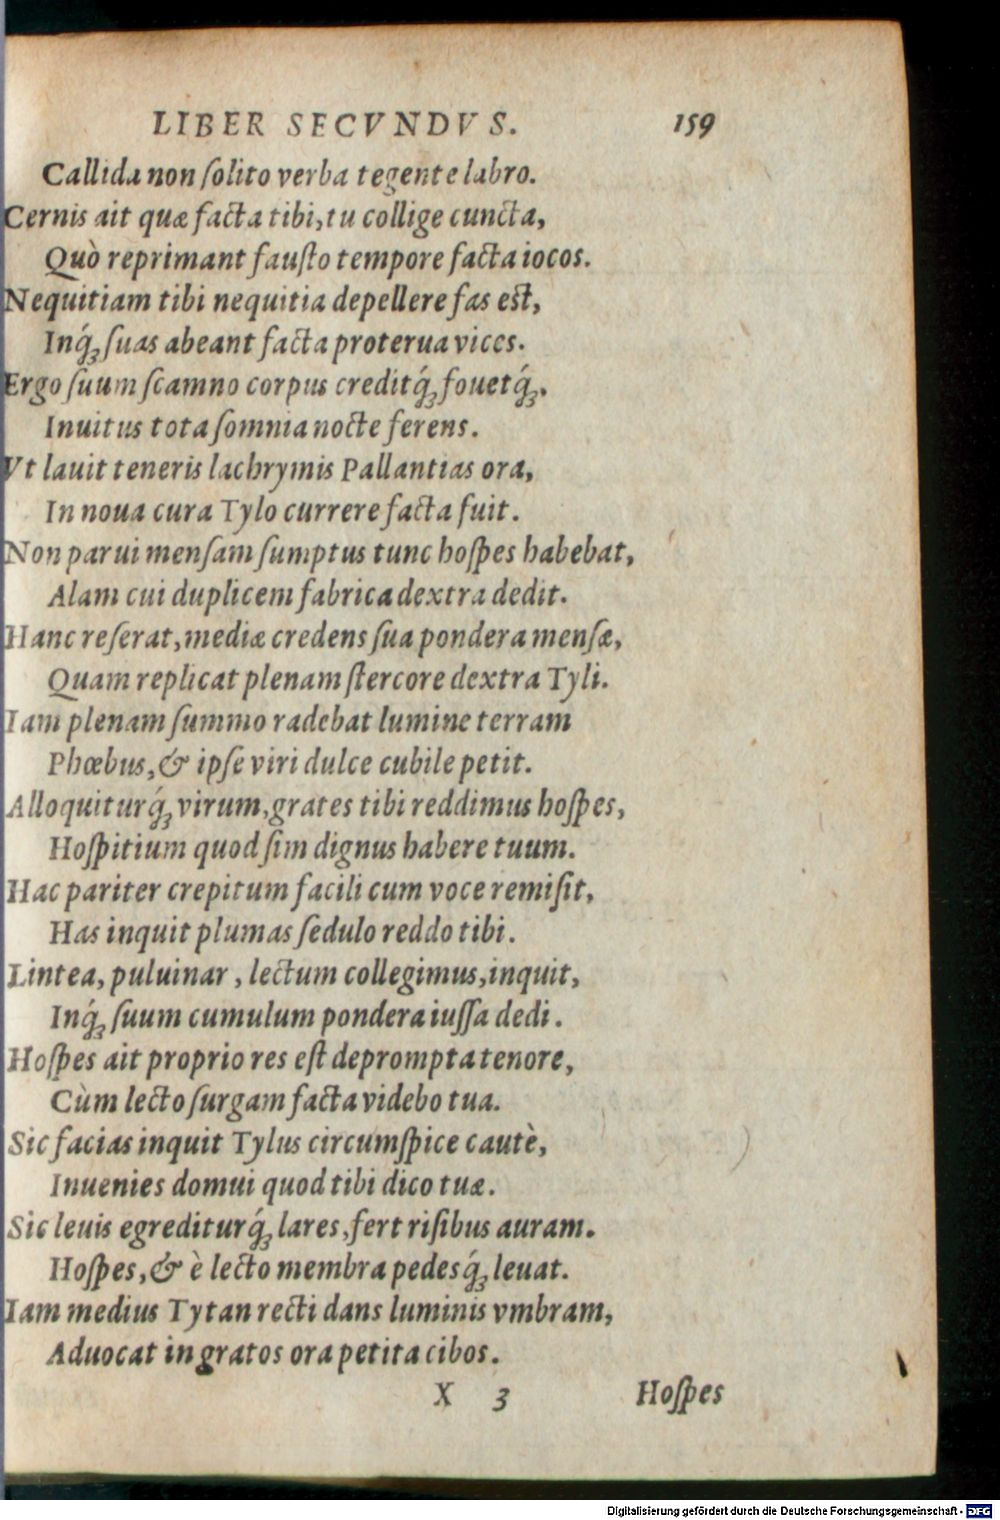 LIBER SECVNDVS. 159
Callida non ſolito verba tegente labro.
Cernis ait quæ facta tibi, tu collige cuncta,
Quò reprimant fauſto tempore facta iocos.
Nequitiam tibi nequitia depellere fas eſt,
Inq́ꝫ ſuas abeant facta proterua vices.
Ergo ſuum ſcamno corpus creditq́ꝫ fouetq́ꝫ.
Inuitus tota ſomnia nocte ferens.
Vt lauit teneris lachrymis Pallantias ora,
In noua cura Tylo currere facta fuit.
Non parui menſam ſumptus tunc hoſpes habebat,
Alam cui duplicem fabrica dextra dedit.
Hanc reſerat, mediæ credens ſua pondera menſæ,
Quam replicat plenam ſtercore dextra Tyli.
Iam plenam ſummo radebat lumine terram
Phœbus, & ipſe viri dulce cubile petit.
Alloquiturq́ꝫ virum, grates tibi reddimus hoſpes,
Hoſpitium quod ſim dignus habere tuum.
Hac pariter crepitum facili cum voce remiſit,
Has inquit plumas ſedulo reddo tibi.
Lintea, puluinar, lectum collegimus, inquit,
Inq́ꝫ ſuum cumulum pondera iuſſa dedi.
Hoſpes ait proprio res eſt deprompta tenore,
Cùm lecto ſurgam facta videbo tua.
Sic facias inquit Tylus circumſpice cautè,
Inuenies domui quod tibi dico tuæ.
Sic leuis egrediturq́ꝫ lares, fert riſibus auram.
Hoſpes, & è lecto membra pedesq́ꝫ leuat.
Iam medius Tytan recti dans luminis vmbram,
Aduocat in gratos ora petita cibos.
X 3 Hoſpes
Digitalisierung gefördert durch die Deutsche Forschungsgemeinschaft - DFG